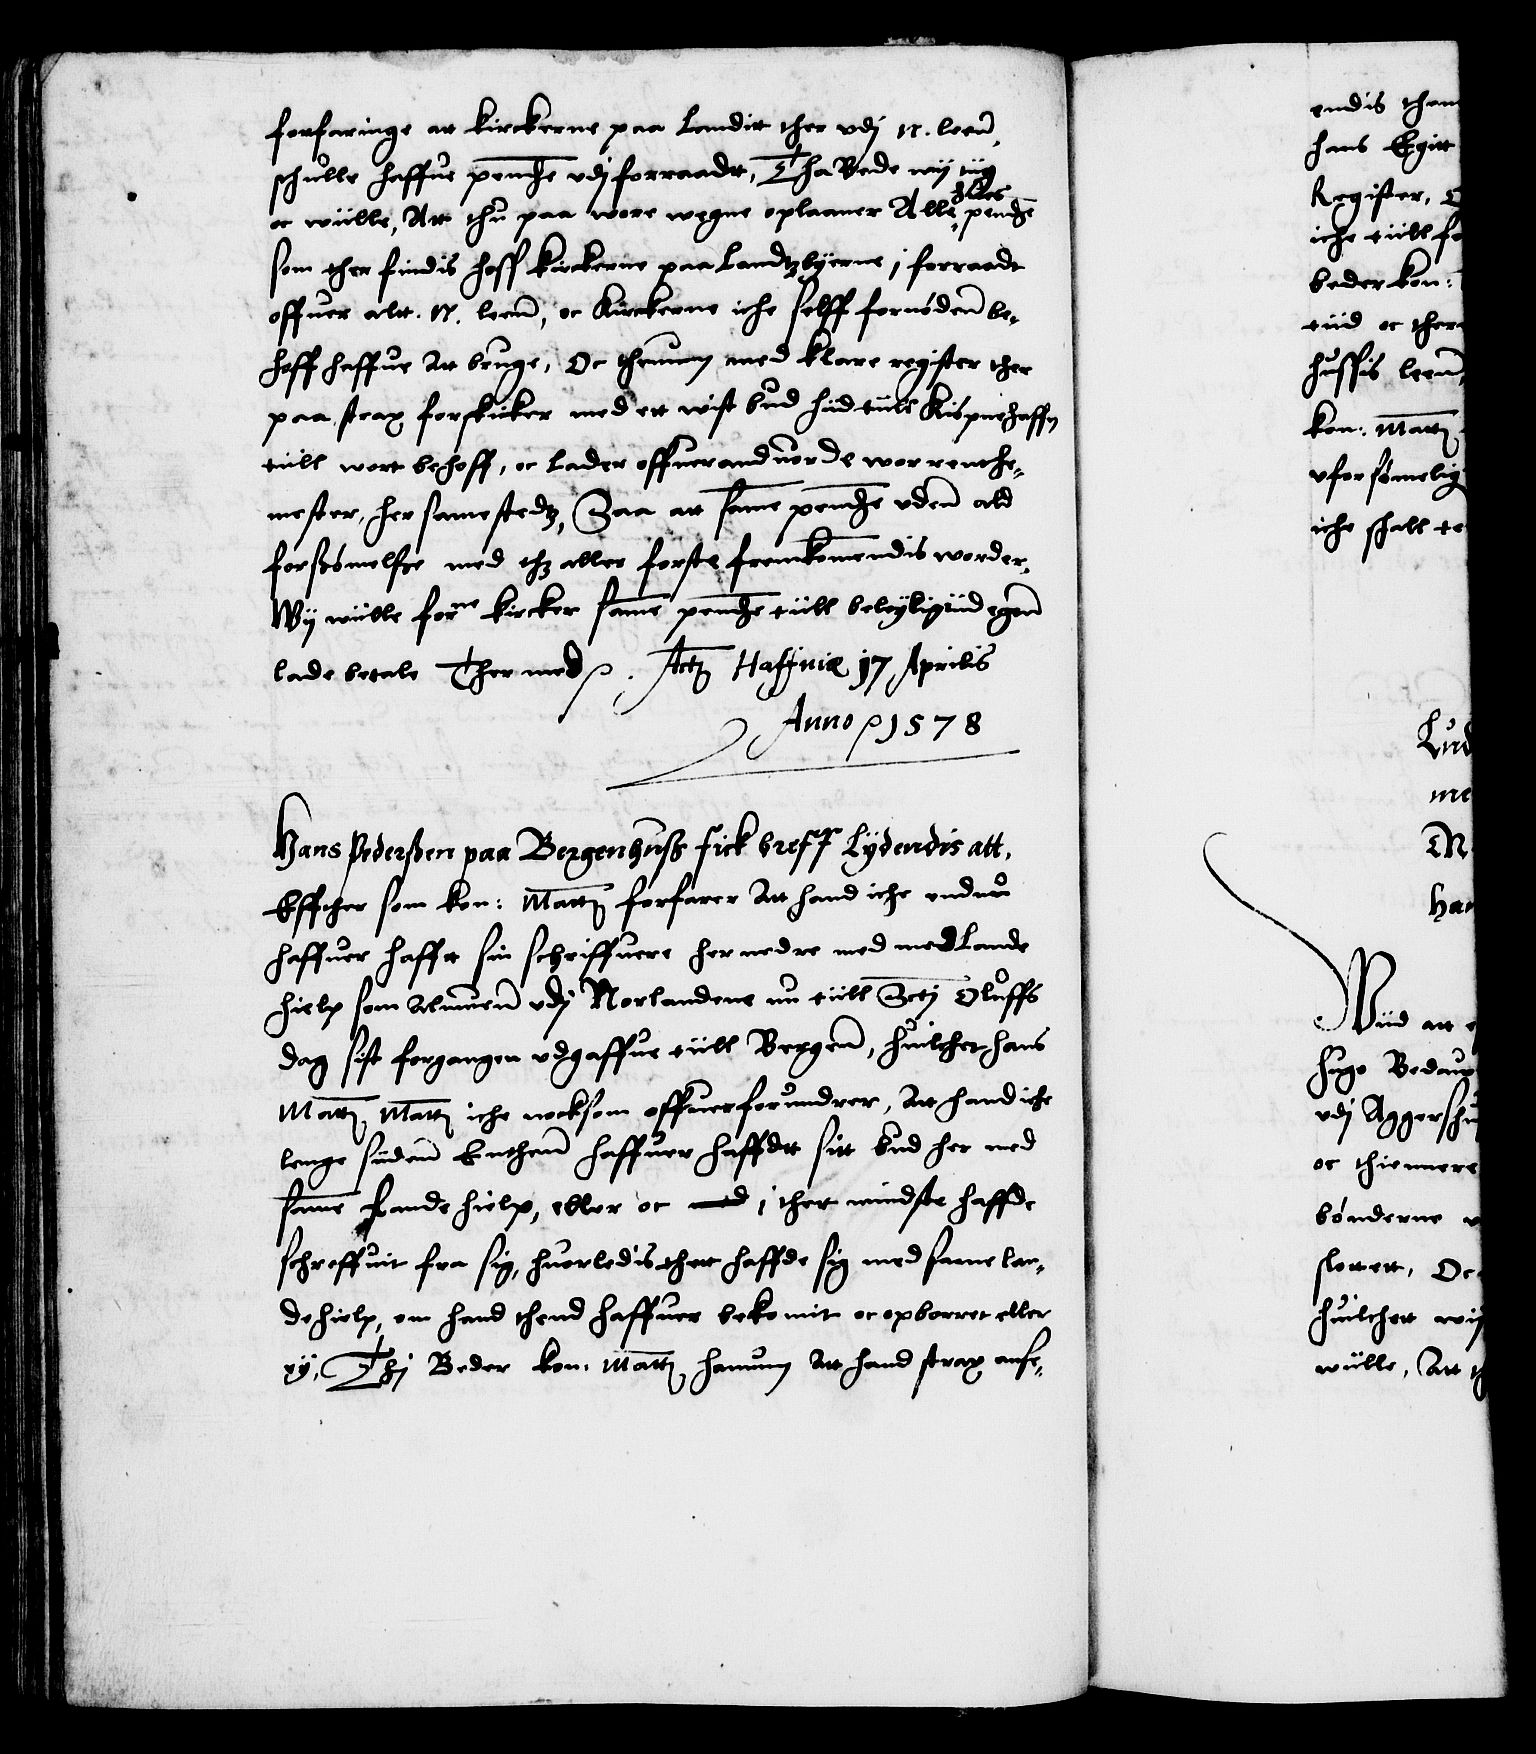 forfaringe att kirckerne paa Landitt ther vdj N. leen,
schulle haffue pendge vdj forraadt, Tha Bede wij tiig
oc wiille, Att thu paa wore wegne oplaaner Alle, hues pendge
som ther findis hoff kirckerne paa Landtzbyerne i forraadt
offuer altt. N. leen, oc Kirckerne iche selff fornøden be-
hoff haffue Att bruge, Oc thennom med klare register ther
paa strax forskicker med ett wist bud hiid tiill Kiøpnehaffn
tiill wort behoff, oc lader offuerandtuorde wor renthe-
mester, her samestedtz, Saa att same pendge vden ald
forsømelsse med thz aller første fremkomendis worder,
Wij wiille forne kircker same pendge tiill beleyligtiid egen
lade betale Ther med p. Actum Haffniæ 17 Aprilis
Anno p 1578
Hans Pederßen paa Bergenhuß fick breff Lydendis att,
Effther som kon: Matt forfarer Att hand iche endnu
haffuer hafftt sin schriffuere her nedre med med Lande
hielp som Almuen vdj Norlandene nu tiill Scti Oluffs
dag sist forgangen vdgaffue tiill Bergen, huilchet hans
Matt Matt iche nocksom offuerforundrer, Att hand iche
lenge siiden Enthen haffuer haffdtt sitt bud her med
same Lande hielp, eller oc i thet mindste haffde
schreffuit fra sig, huorledis thett haffde sig med same lan-
dehielp, om hand thend haffuer bekomit oc opborret eller
ey, Thj Beder kon: Matt hannom Att hand strax anse-
endis than
hans Egitt
Register, O
iche tiill fo
beder kon:
tiid oc ther
hussis leen
kon: Matt
vforsømelig
iche schall te
Lud
me
M
Han
Wiid att e
Hugo Bedaup
vdj Aggershu
oc thiennere
bønderne v
slottett, Oc
huilchett wij
wiille, Att th